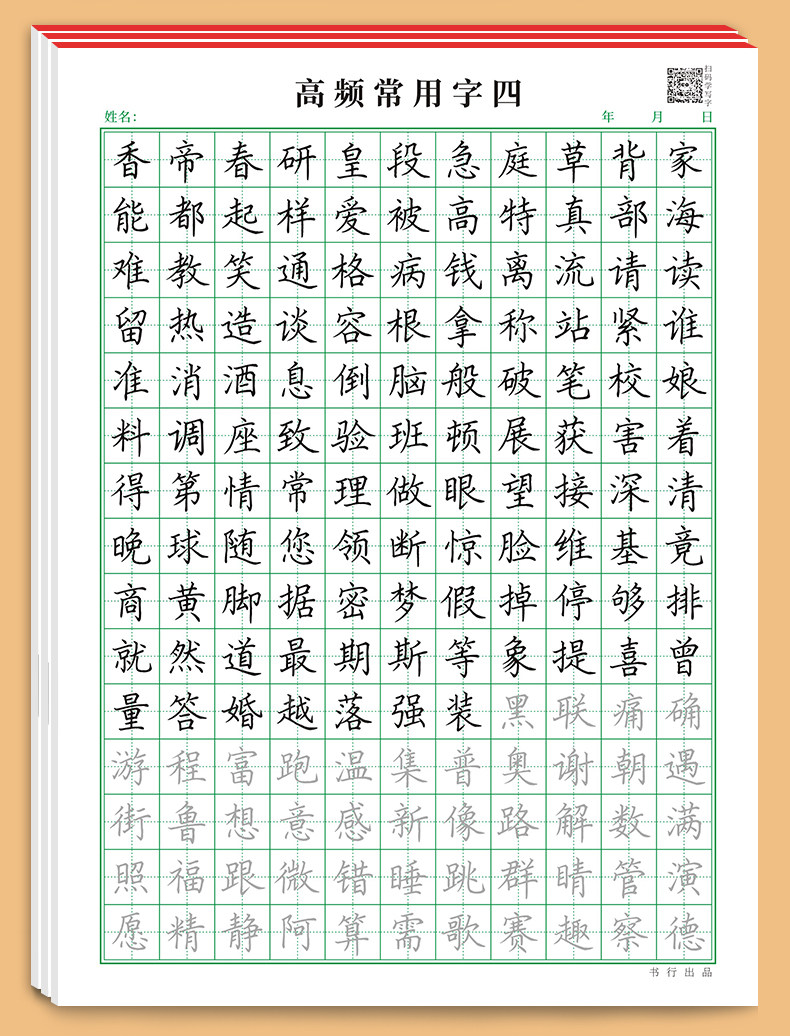 高频常用字四
扫码学写字
姓名: 年 月 日
香帝春研皇段急庭草背家
能都起样爱被高特真部海
难教笑通格病钱离流请读
留热造谈容根拿称站紧谁
准消酒息倒脑般破笔校娘
料调座致验班顿展获害着
得第情常理做眼望接深清
晚球随您领断惊脸维基竟
商黄脚据密梦假掉停够排
就然道最期斯等象提喜曾
量答婚越落强装黑联痛确
游程富跑温集普奥谢朝遇
街鲁想意感新像路解数满
照福跟微错睡跳群睛管演
愿精静阿算需歌赛趣察德
书行出品